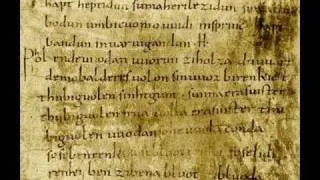 hapt heptidun sumaherilezidun sumaclu
bodun umbicuonio uuidi insprinc hapt
bandun inuar uigandun. H.
Phol endeuuodan uuorun ziholza du uuart
demobalderes uolon sinuuoz birenkict
thubiguolen sinhtgunt. sunnaerasuister
thubiguolen friia uolla erasuister thu
biguolen uuodan uuolaconda
sosebenrenki soselidi
renki ben zibena bluot